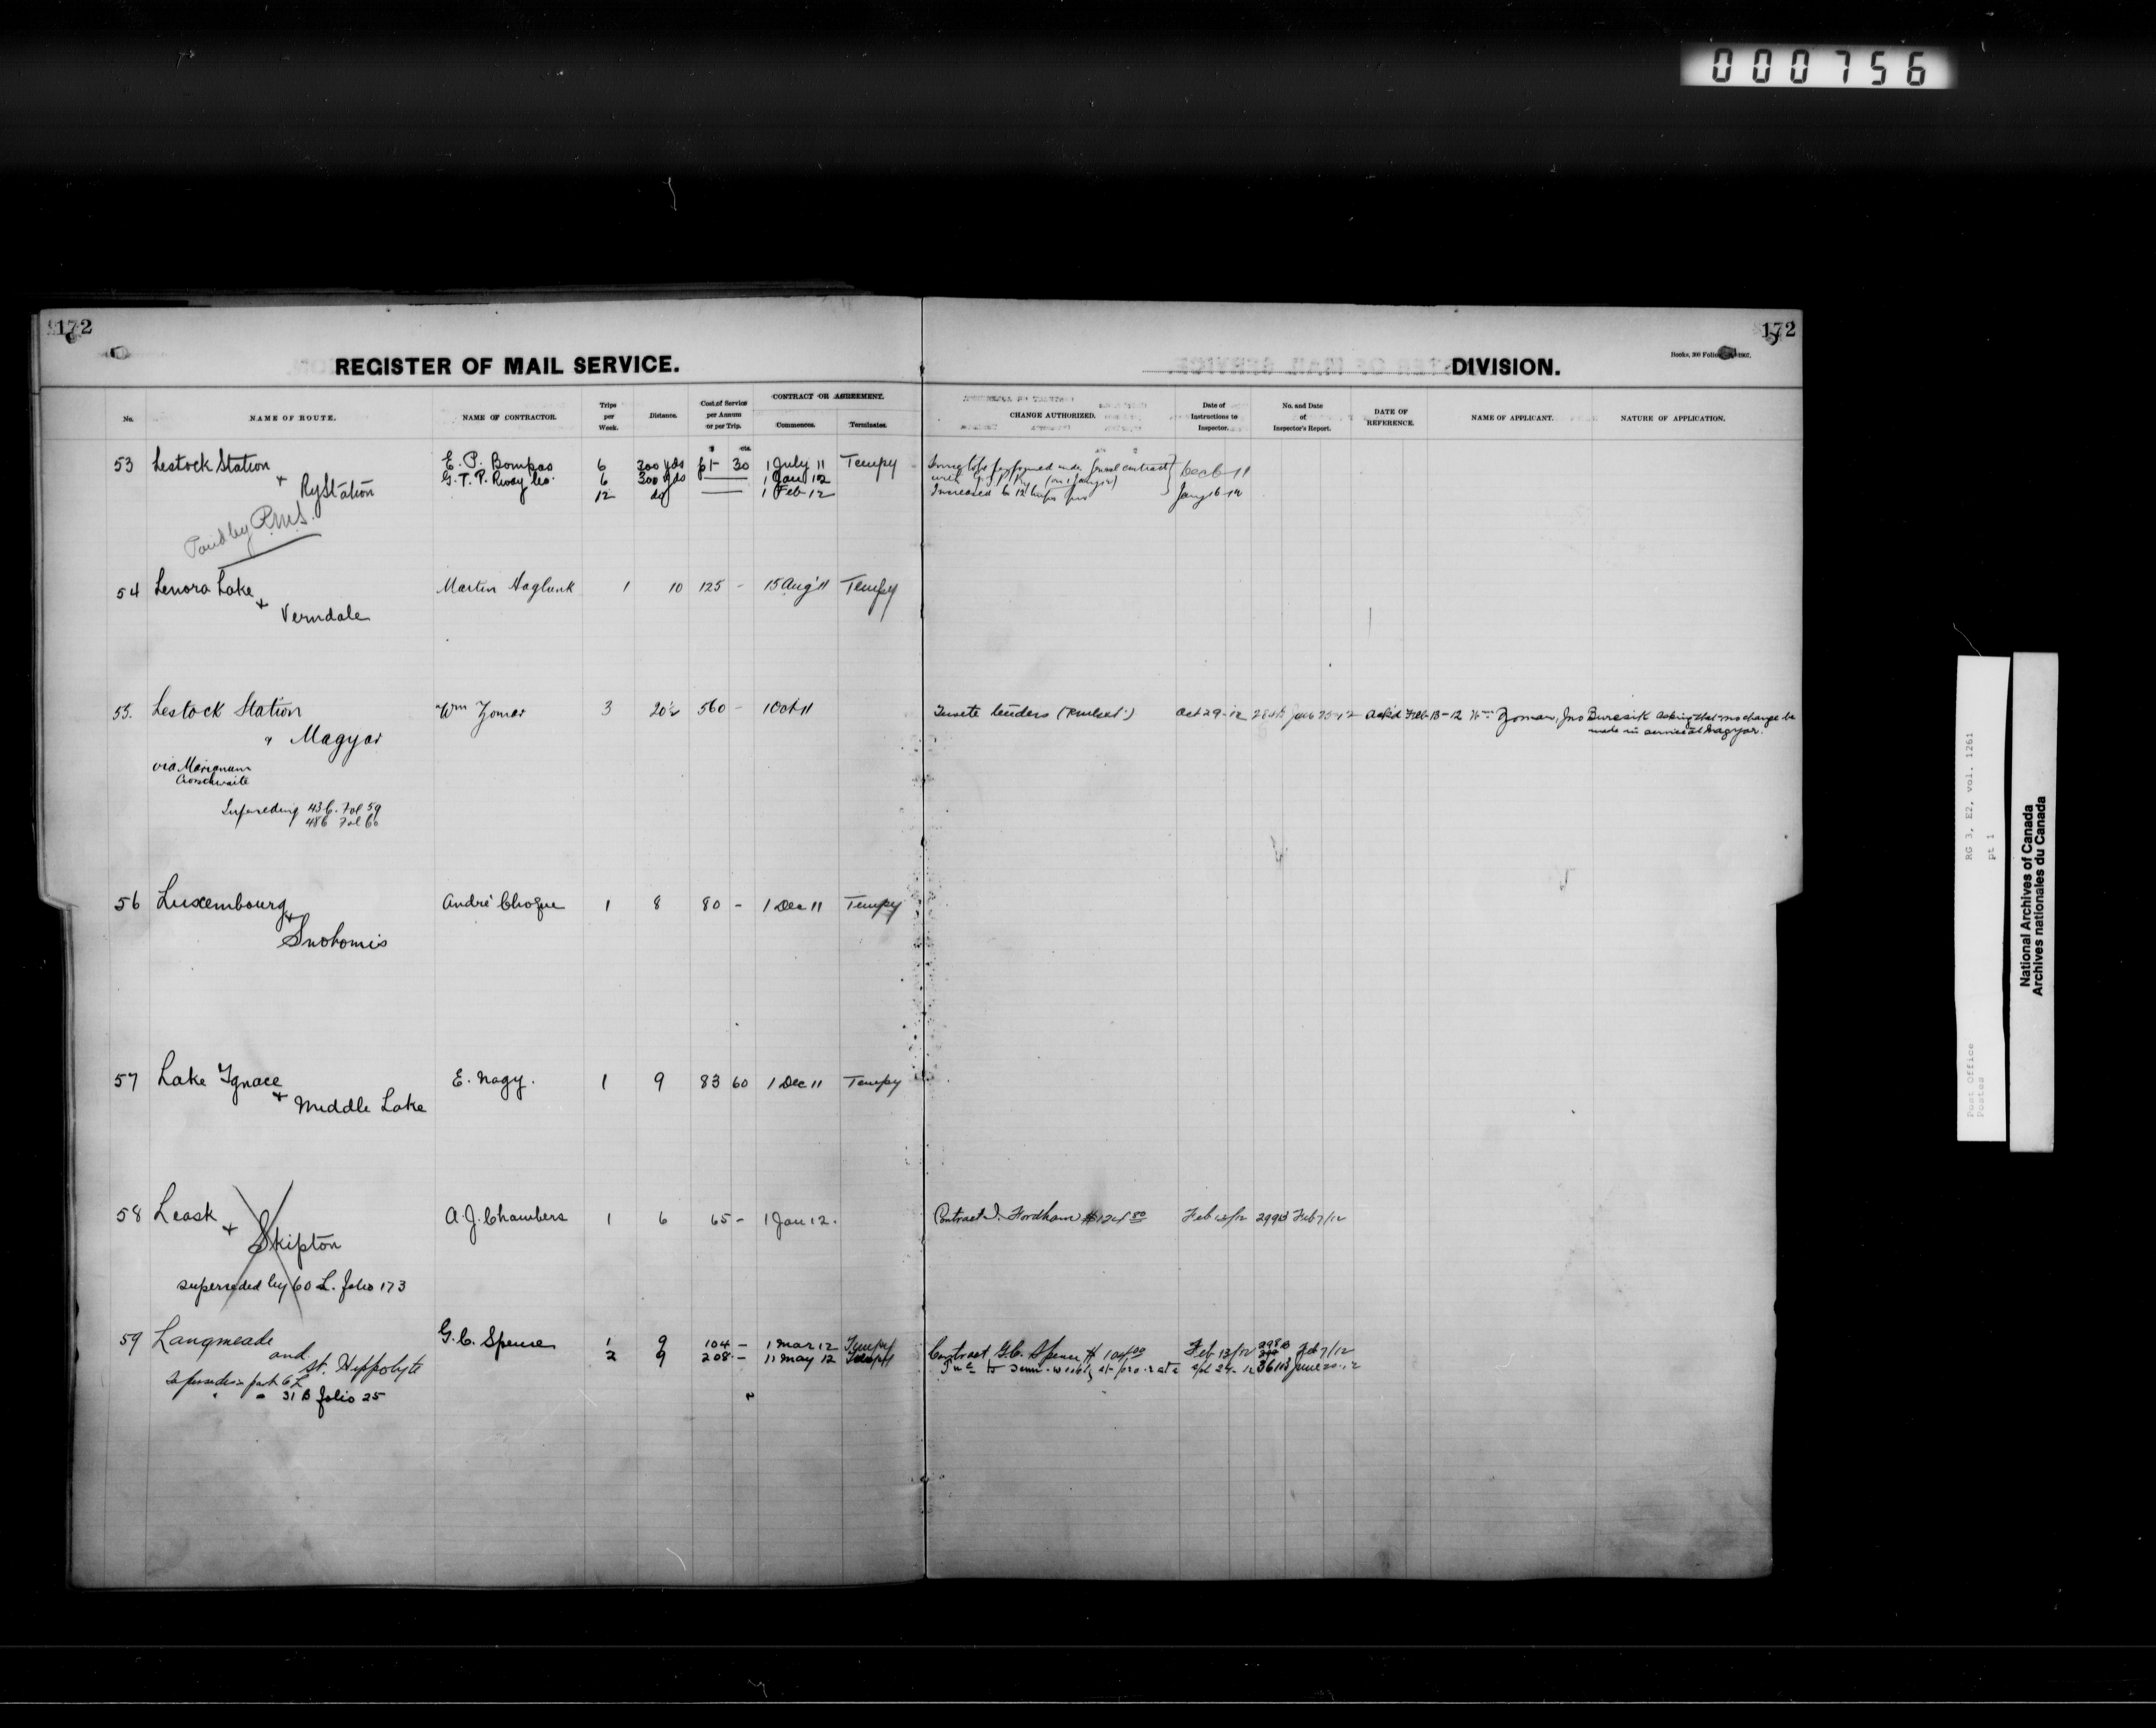 000756
172
172
REGISTER OF MAIL SERVICE.
DIVISION.
No.
NAME OF ROUTE.
NAME OF CONTRACTOR.
Trips per Week.
Distance.
Cost of Service per Annum or per Trip.
CONTRACT OR AGREEMENT.
Commences.
Terminates.
CHANGE AUTHORIZED.
Date of Instructions to Inspector.
No. and Date of Inspector's Report.
DATE OF REFERENCE.
NAME OF APPLICANT.
NATURE OF APPLICATION.
53 Lestock Station + Ry Station
E. P. Bompas 6 300 yds 30 1 July 11 Tempy
G. T. P. Rway Co. 6 300 yds 1 Jan 12
12 do 1 Feb 12
Increased to 12 trips
Paid by R.M.S.
54 Lenora Lake + Verndale
Martin Haglunk 1 10 125 - 15 Aug 11 Tempy
55. Lestock Station " Magyar
Wm Zoman 3 20½ 560 - 1 Oct 11
Invite tenders
Feb-13-12 Wm Zoman, Jno Buresik asking that no change be
made in service at Magyar.
via Marianum
Superseding 43 6. Fol 59
486 Fol 60
56 Luxembourg + Snohomis
André Choque 1 8 80 - 1 Dec 11 Tempy
57 Lake Ignace + Middle Lake
E. Nagy. 1 9 83 60 1 Dec 11 Tempy
58 Leask + Skipton
A. J. Chambers 1 6 65 - 1 Jan 12.
Contract J. Fordham $124 80 Feb 12/12 299 Feb 7/12
superseded by 60 L. folio 173
59 Langmeade and St. Hippolyte
G. C. Spense 1 9 104 - 1 Mar 12 Tempy
2 9 208 - 11 May 12 Tempy
Contract G. C. Spense $ 104 00 Feb 13/12 298 Feb 7/12
Inc to semi-weekly at pro rata
Supersedes in part 6 L
" " 31 B folio 25
RG 3, E2, vol. 1261
pt 1
Post Office
Postes
National Archives of Canada
Archives nationales du Canada